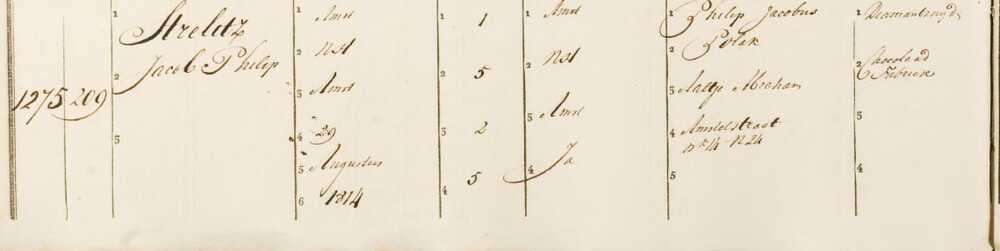 1275 209
1
Strelitz
2
Jacob Philip
3
1 Amst
2 Nst
3 Amst
4 29
5 Augustus
6 1814
1 1
2 5
3 2
4 5
1 Amst
2 Nst
3 Amst
4 Ja
1 Philip Jacobus
2 Polak
3 Aaltje Abraham
4 Amstelstraat
No 14 N 24
5
1 Diamantsnijd.
2 Chocolaad
Fabriek